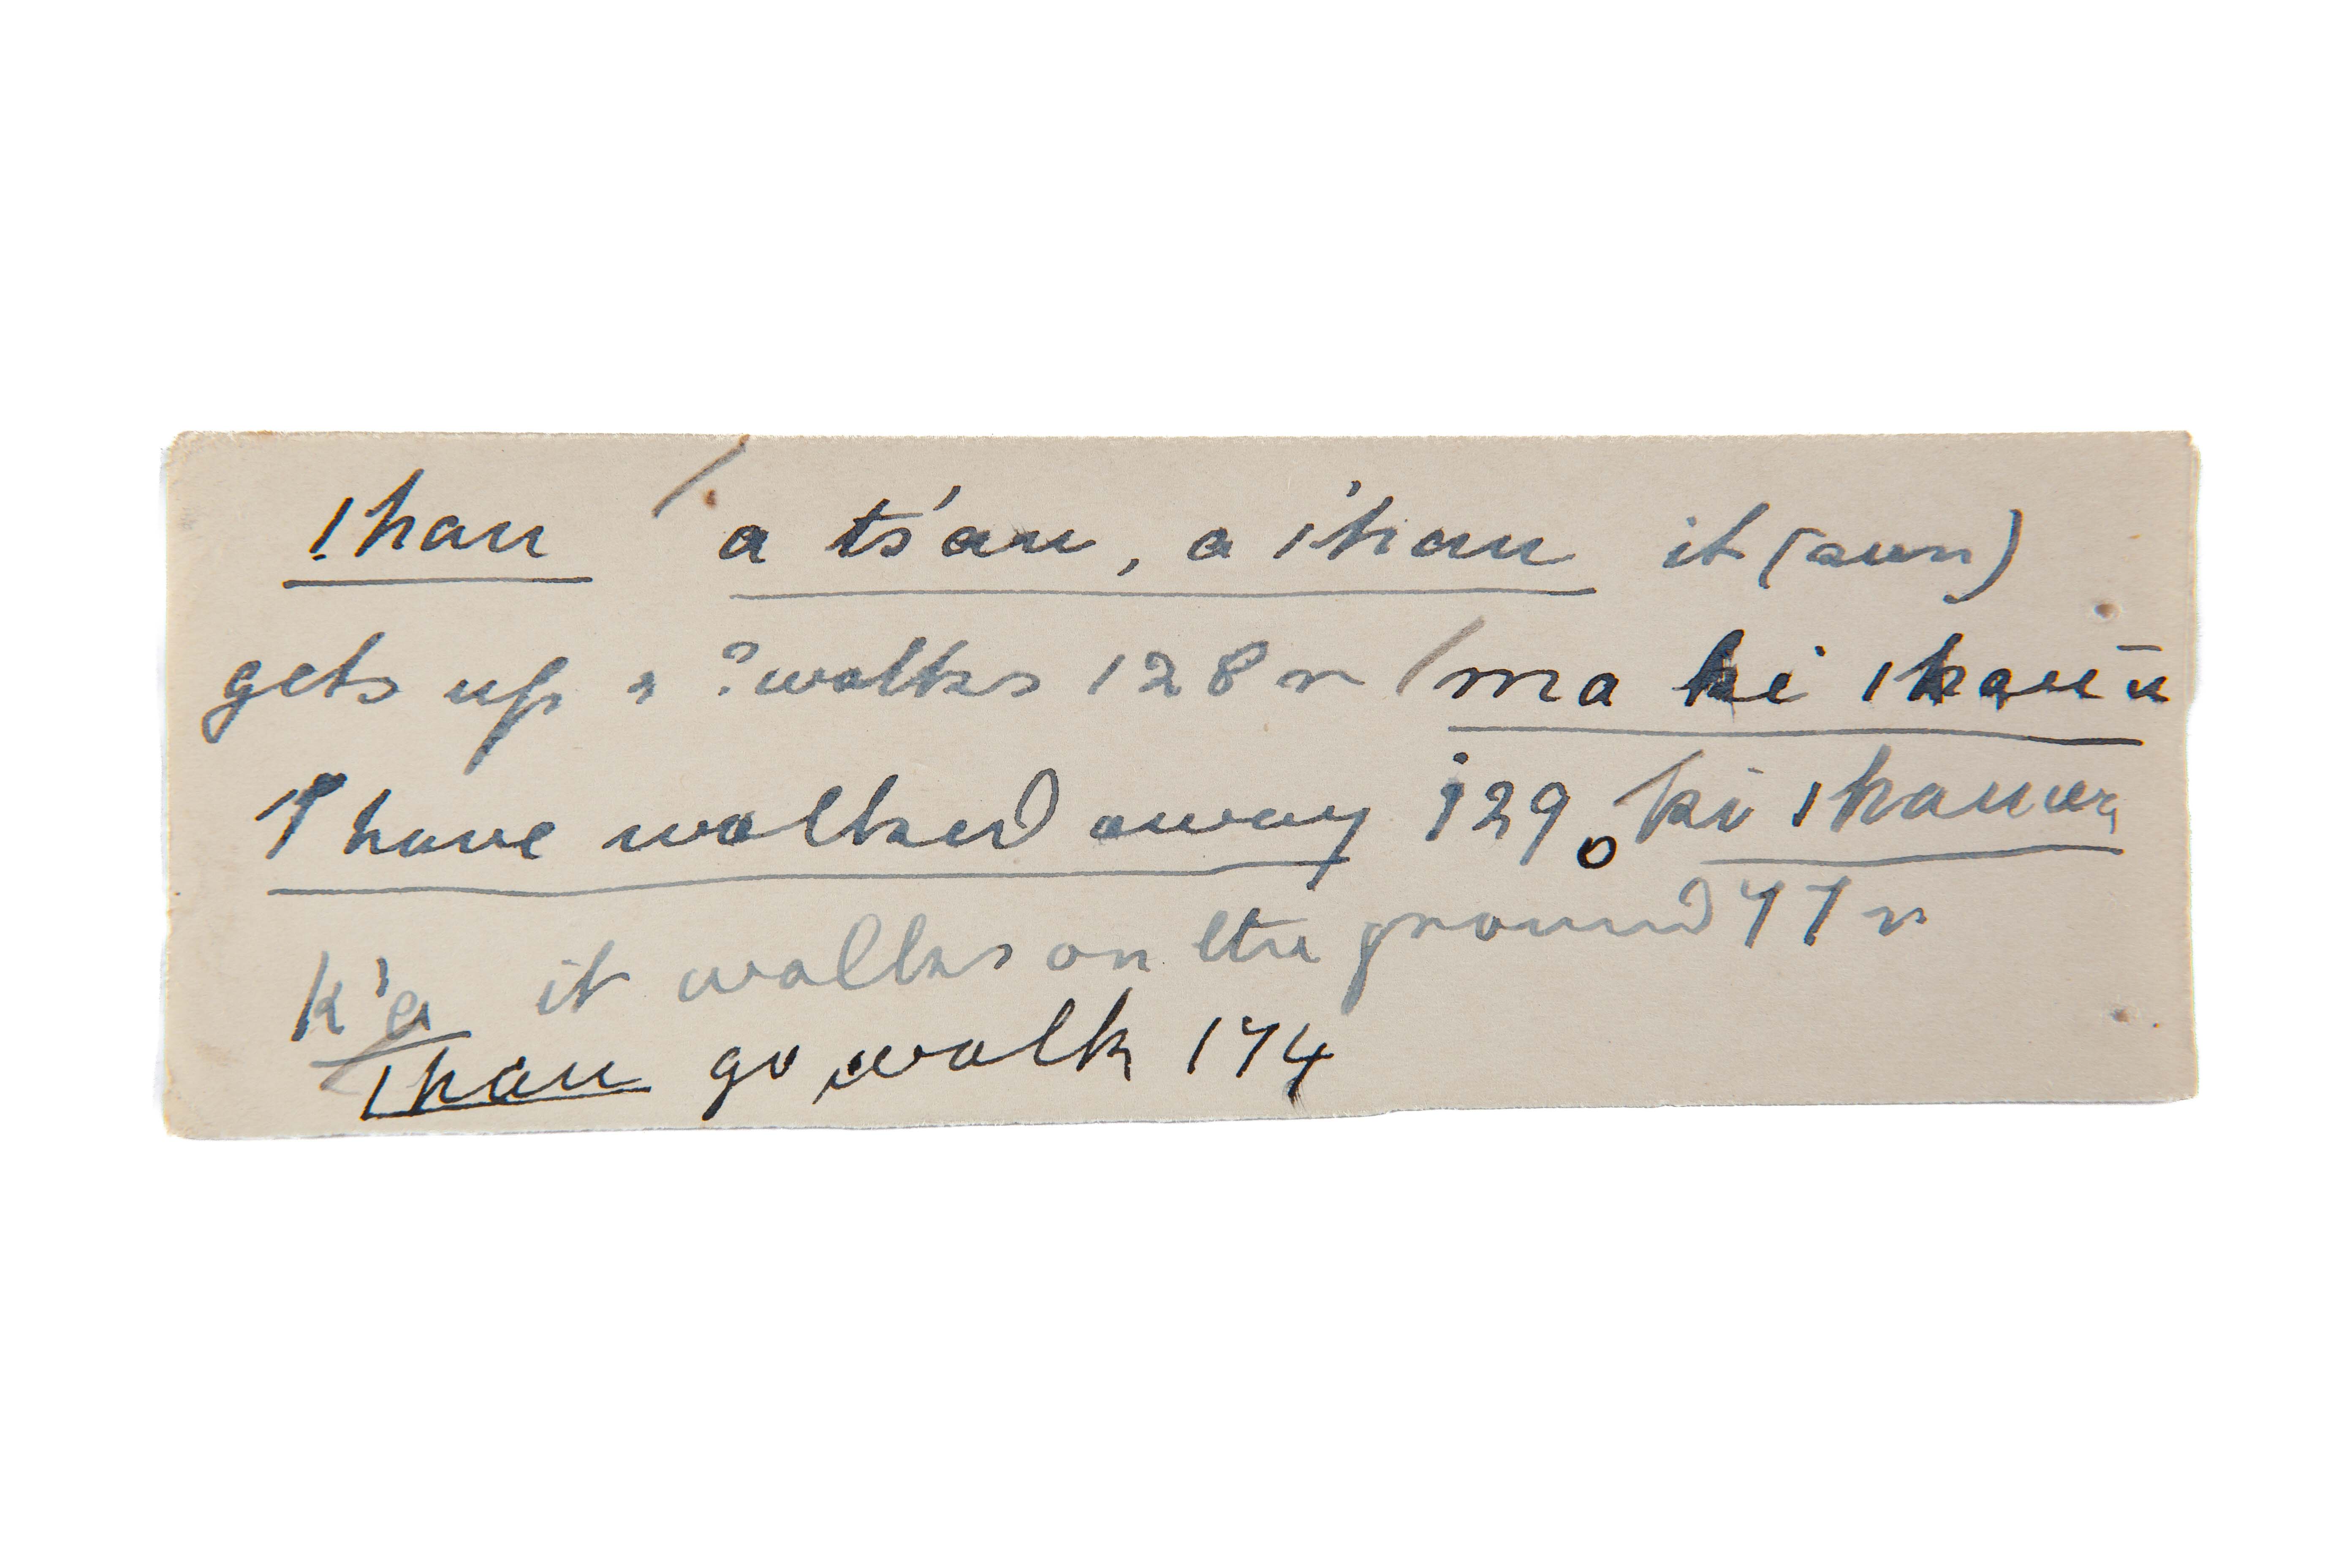 ǃhau / a ts'au, a ǀ'hau it (sun)
gets up & ? walks 128 r / ma ki ǀhau ū
I have walked away 129. ki ǀhau wa
k'a it walks on the ground 77 r
ǀhau go walk 174